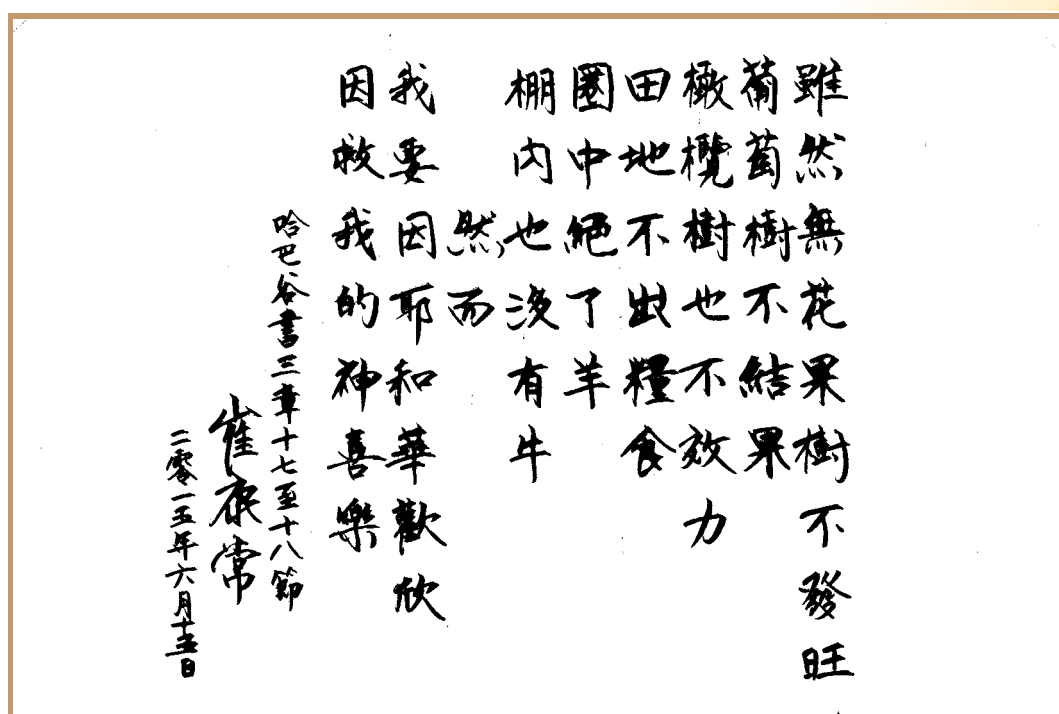 雖然無花果樹不發旺
葡萄樹不結果
橄欖樹也不效力
田地不出糧食
圈中絕了羊
棚內也沒有牛
然而
我要因耶和華歡欣
因救我的神喜樂
哈巴谷書三章十七至十八節
崔康常
二零一五年六月十五日